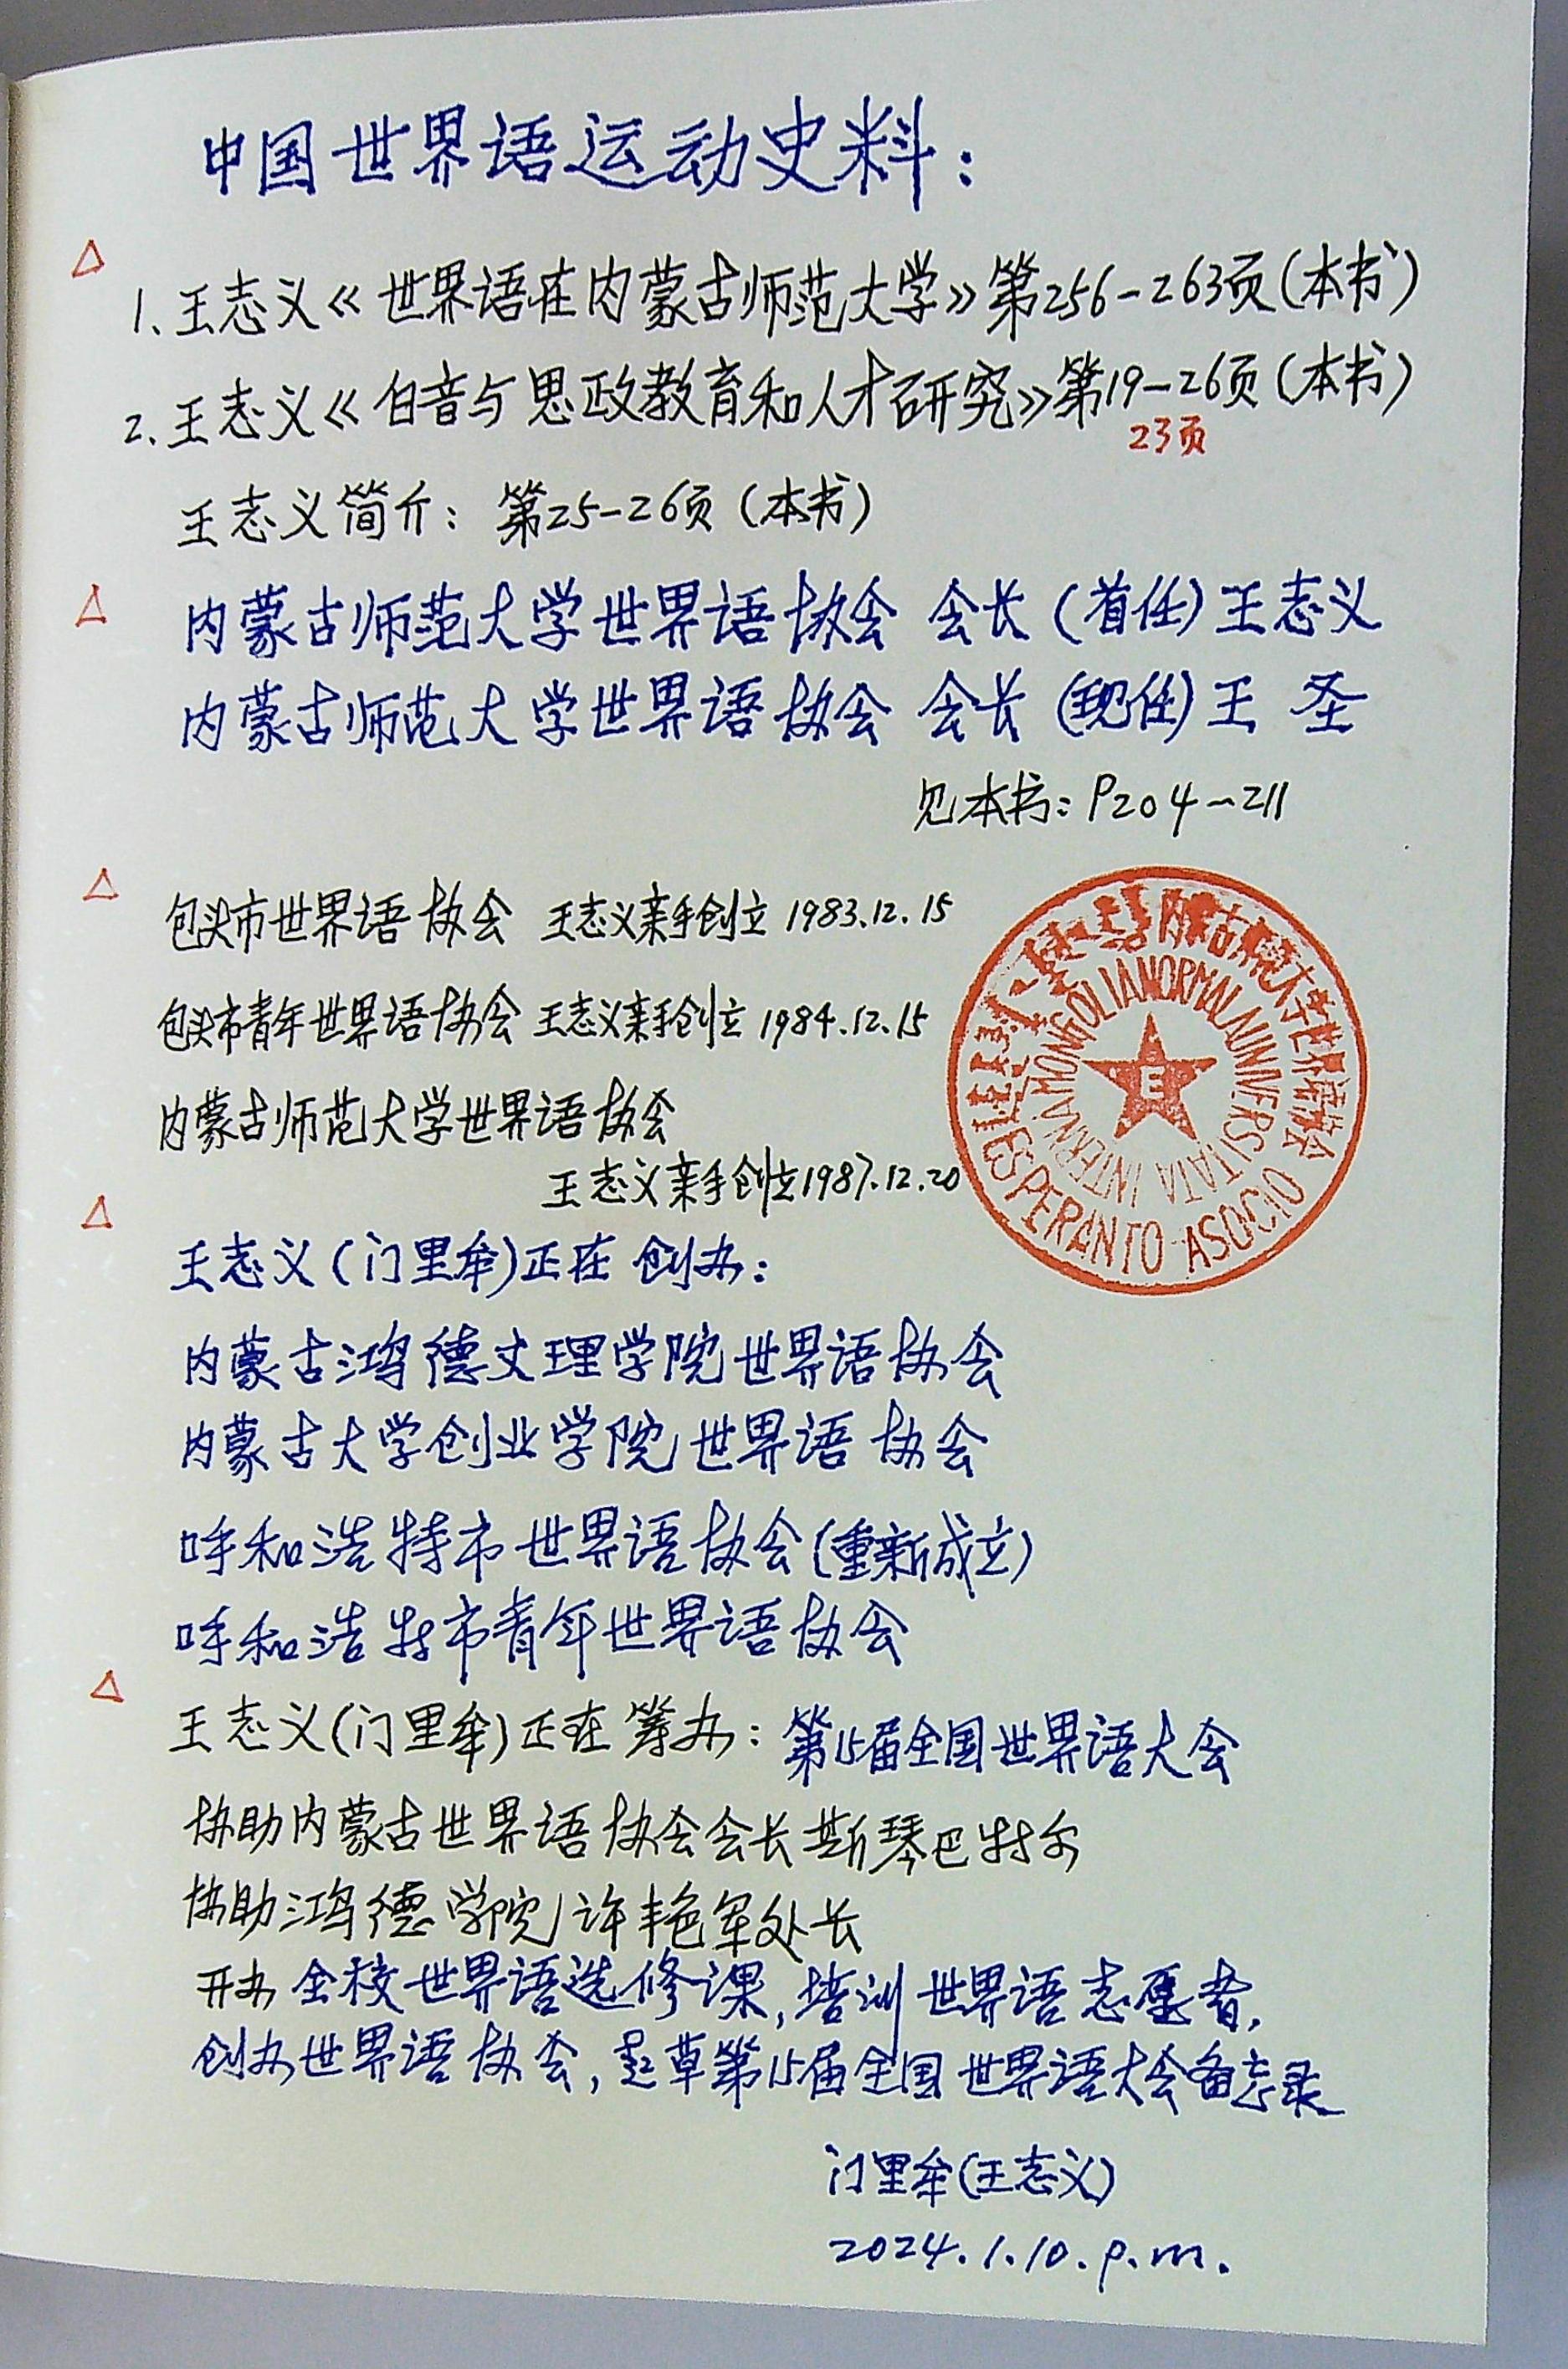 中国世界语运动史料：
△
1、王志义《世界语在内蒙古师范大学》第256-263页(本书)
2、王志义《白音与思政教育和人才研究》第19-26页(本书)
23页
王志义简介：第25-26页(本书)
△ 内蒙古师范大学世界语协会 会长(首任)王志义
内蒙古师范大学世界语协会 会长(现任)王 圣
见本书：P204-211
△ 包头市世界语协会 王志义亲手创立 1983.12.15
包头市青年世界语协会 王志义亲手创立 1984.12.15
内蒙古师范大学世界语协会
王志义亲手创立1987.12.20
内蒙古师范大学世界语协会
INTERNA MONGOLIA NORMALA UNIVERSITATA
E
ESPERANTO-ASOCIO
△
王志义(门里牟)正在 创办：
内蒙古鸿德文理学院世界语协会
内蒙古大学创业学院世界语协会
呼和浩特市世界语协会(重新成立)
呼和浩特市青年世界语协会
△
王志义(门里牟)正在筹办：第15届全国世界语大会
协助内蒙古世界语协会会长斯琴巴特尔
协助鸿德学院许艳军处长
开办全校世界语选修课,培训世界语志愿者,
创办世界语协会,起草第15届全国世界语大会备忘录
门里牟(王志义)
2024.1.10.p.m.